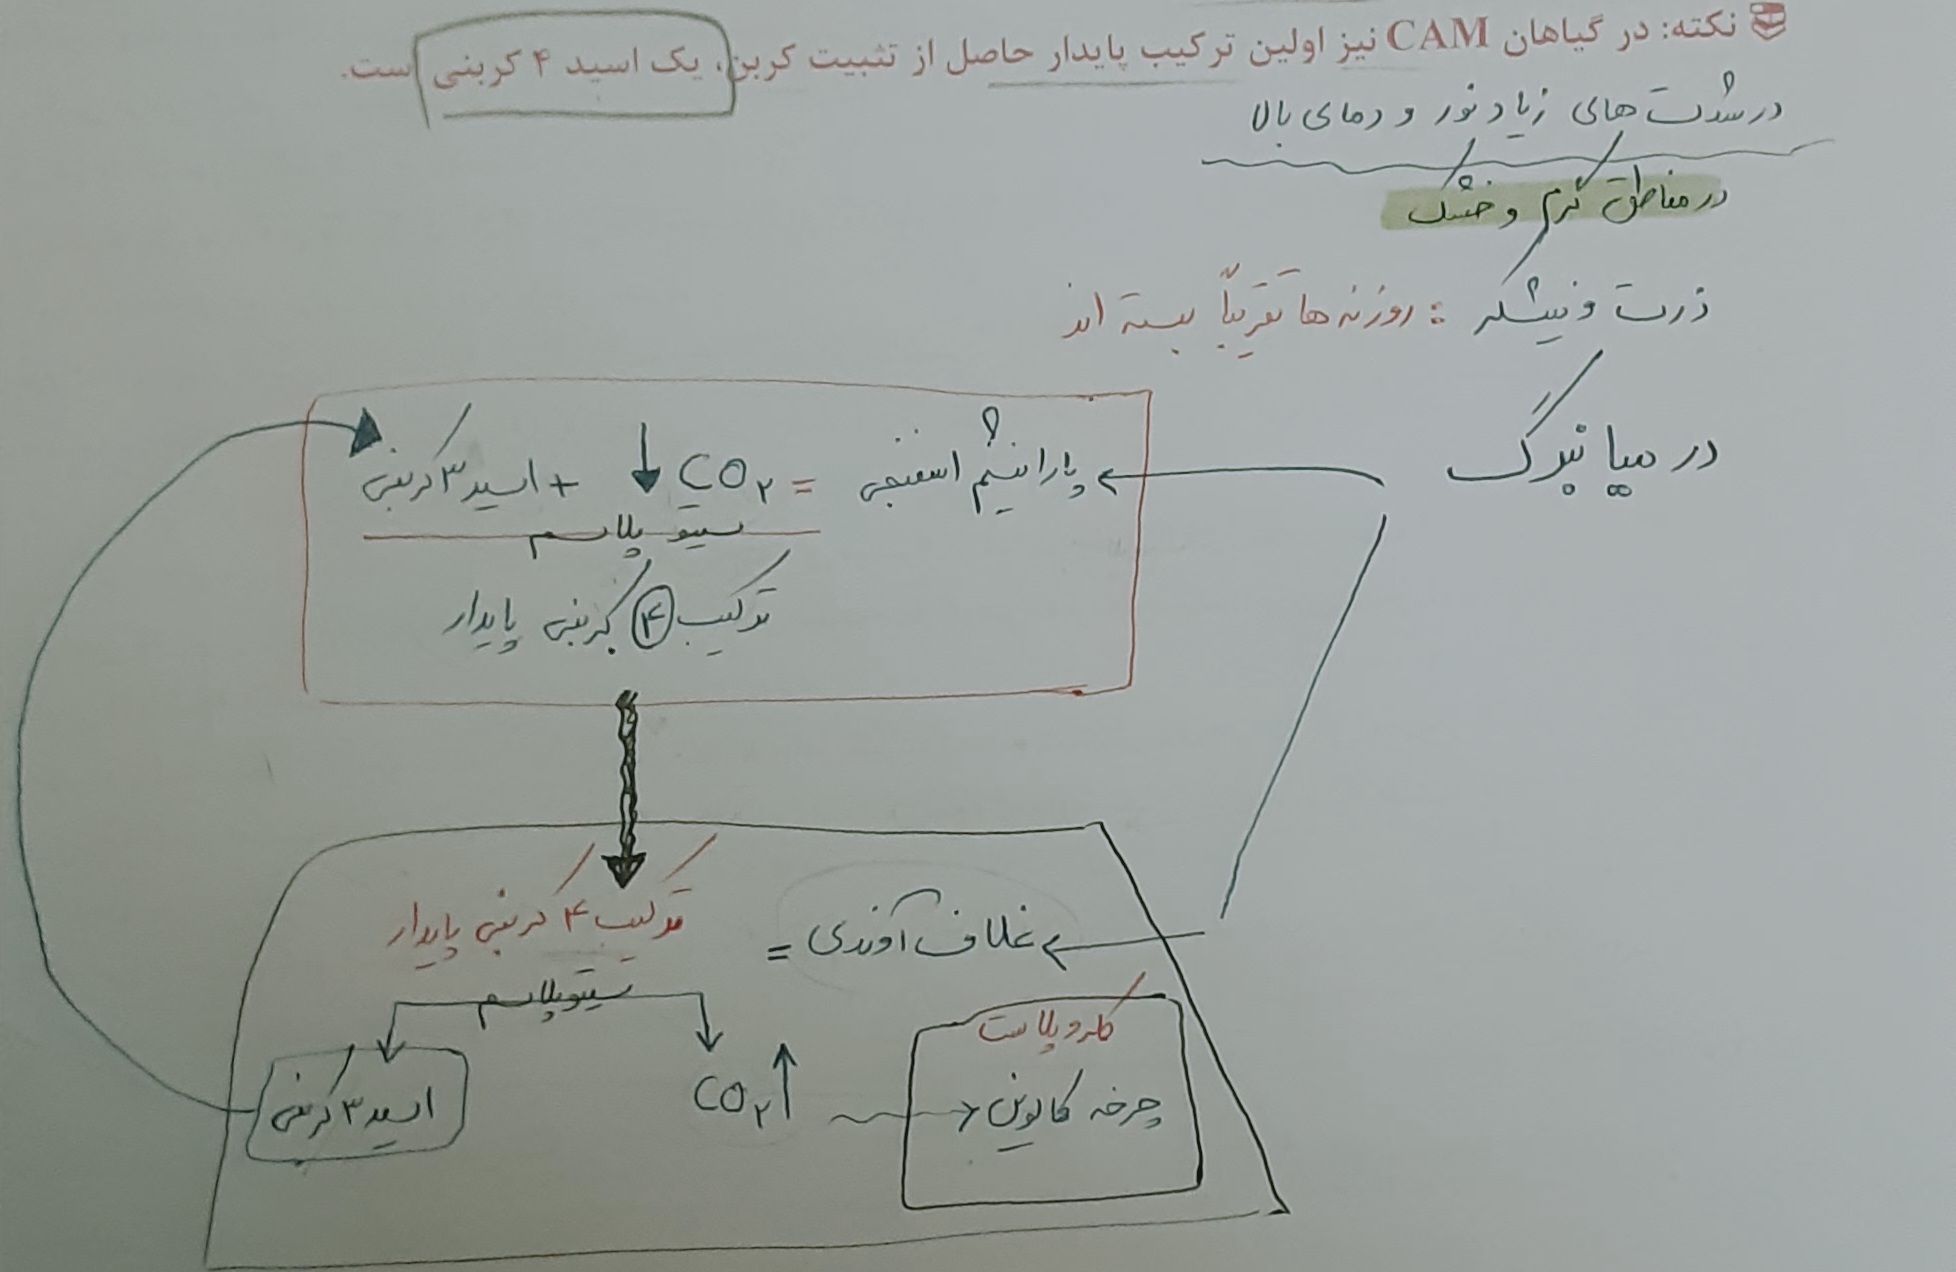 نکته: در گیاهان CAM نیز اولین ترکیب پایدار حاصل از تثبیت کربن، یک اسید ۴ کربنی است.
در شدت های زیاد نور و دمای بالا
در مناطق گرم و خشک
ذرت و نیشکر : روزنه ها تقریباً بسته اند
در میانبرگ
پارانشیم اسفنجی = CO۲ ↓ + اسید ۳ کربنی
سیتوپلاسم
ترکیب ۴ کربنی پایدار
ترکیب ۴ کربنی پایدار
غلاف آوندی =
سیتوپلاسم
کلروپلاست
چرخه کالوین
CO۲ ↑
اسید ۳ کربنی